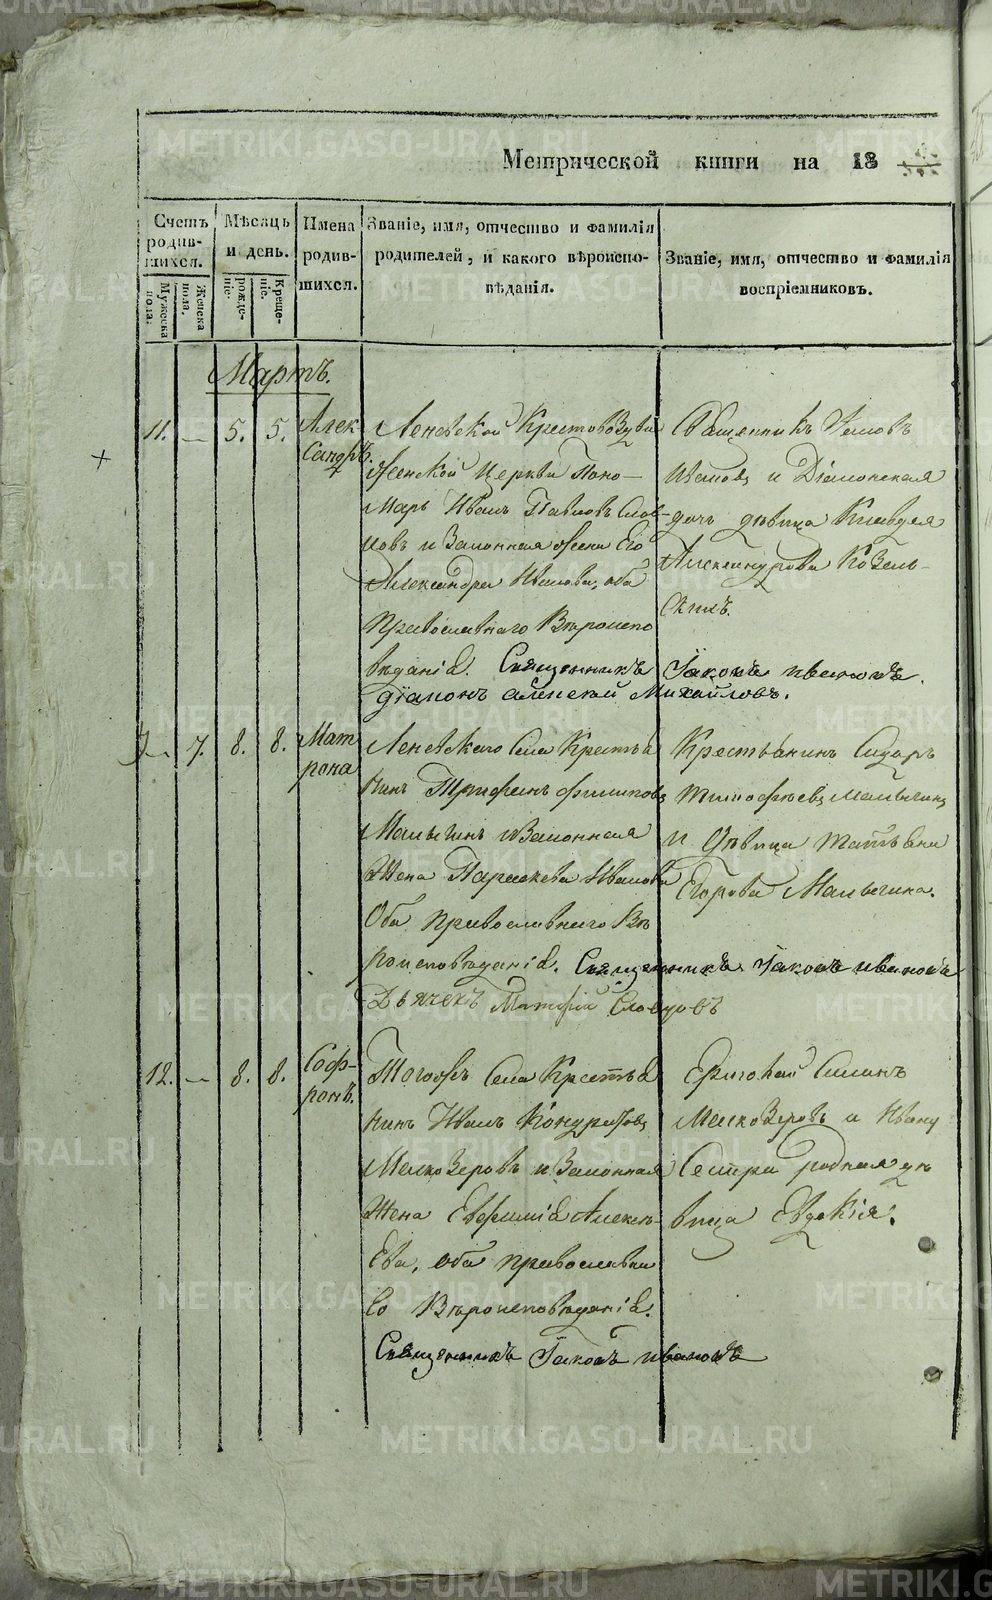 Метрической книги на 18
Счетъ родив-шихся.
Мужеска пола.
Женска пола.
Мѣсяцъ и день.
рожде-ніе.
Креще-ніе.
Имена родив-шихся.
Званіе, имя, отчество и фамилія родителей, и какого вѣроиспо-вѣданія.
Званіе, имя, отчество и фамилія воспріемниковъ.
Мартъ.
11. — 5. 5. Алек
сандръ.
Леневской Крестовоздви
женской Церкви Поно-
марь Иванъ Павловъ Слов-
цовъ и Законная жена Его
Александра Иванова, оба
Православнаго Вѣроиспо
вѣданія. Священникъ Іаковъ Ивановъ.
діаконъ Алексѣй Михайловъ.
Священникъ Іаковъ
Ивановъ и Діаконская
дочь дѣвица Клавдея
Александрова Козель-
скихъ.
— 7. 8. 8. Мат
рона
Леневскаго Села Крестья
нинъ Трифонъ Филиповъ
Малыгинъ и Законная
Жена Параскева Иванова
Оба православнаго Вѣ
роисповѣданія. Священникъ Іаковъ Ивановъ
Дьячекъ Матфій Словцовъ
Крестьянинъ Сидоръ
Тимофѣевъ Малыгинъ
и дѣвица Татьяна
Егорова Малыгина.
12. — 8. 8. Соф-
ронъ.
Тогожъ Села Крестья
нинъ Иванъ Кондратовъ
Мелкозеровъ и Законная
Жена Евфимія Алексѣ-
ева, оба православна
го Вѣроисповѣданія.
Священникъ Іаковъ Ивановъ
Григорий Силинъ
Мелкозеровъ и Ивана
Сестра родная дѣ
вица Евдокія.
METRIKI.GASO-URAL.RU